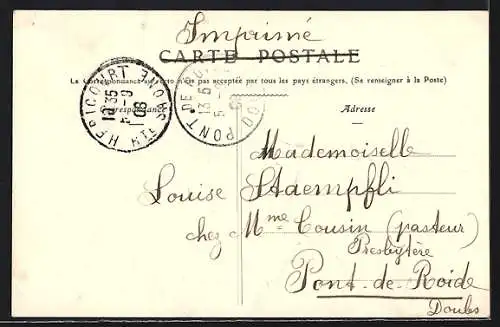 Imprimé
CARTE POSTALE
La Correspondance au recto n'est pas acceptée par tous les pays étrangers. (Se renseigner à la Poste)
Correspondance
Adresse
HERICOURT
HTE SAONE
16 35
5 -9
08
PONT-DE-ROIDE
DOUBS
13
5 -9
Mademoiselle
Louise Staempfli
chez Mme Cousin (pasteur)
Presbytère
Pont-de-Roide
Doubs